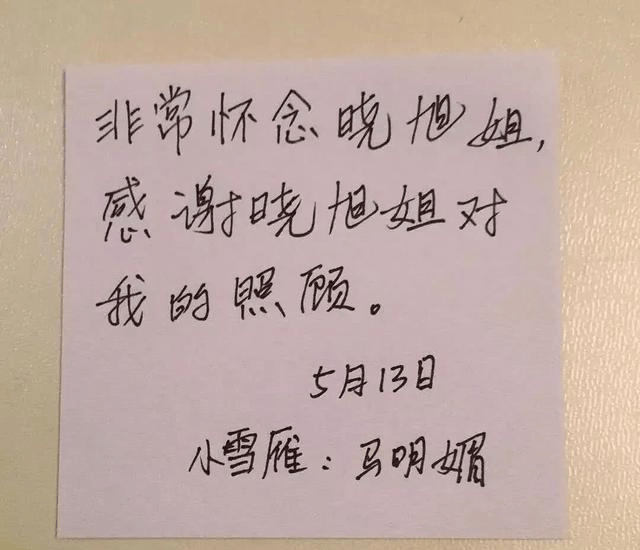 非常怀念晓旭姐,
感谢晓旭姐对
我的照顾。
5月13日
小雪雁：马明媚